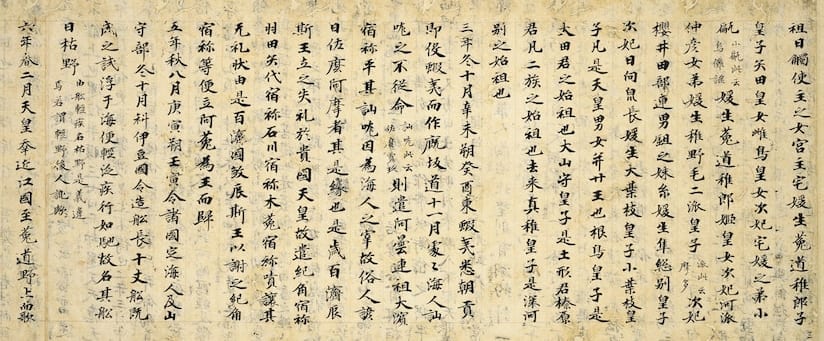 祖日觸使主之女宮主宅媛生菟道稚郎子
皇子矢田皇女雌鳥皇女次妃宅媛之弟小
甂小甂此云烏儺謎媛生菟道稚郎姫皇女次妃河派
仲彦女弟媛生稚野毛二派皇子派此云摩多次妃
櫻井田部連男鉏之妹糸媛生隼総別皇子
次妃日向泉長媛生大葉枝皇子小葉枝皇
子凡是天皇男女并廿王也根鳥皇子是
大田君之始祖也大山守皇子是土形君榛原
君凡二族之始祖也去来真稚皇子是深河
別之始祖也
三年冬十月辛未朔癸酉東蝦夷悉朝貢
即役蝦夷而作厩坂道十一月處々海人訕
哤之不從命訕哤此云佐麼賣玖則遣阿曇連祖大濱
宿祢平其訕哤因為海人之宰故俗人諺
曰佐麼阿摩者其是縁也是歳百濟辰
斯王立之失礼於貴國天皇故遣紀角宿祢
羽田矢代宿祢石川宿祢木菟宿祢嘖讓其
无礼状由是百濟國敜辰斯王以謝之紀角
宿祢等便立阿菀為王而歸
五年秋八月庚寅朔壬寅令諸國定海人及山
守部冬十月科伊豆國令造舩長十丈舩既
成之試浮于海便軽泛疾行如馳故名其舩
曰枯野由舩軽疾名枯野是義違焉若謂軽野後人訛歟
六年春二月天皇幸近江國至菟道野上而歌